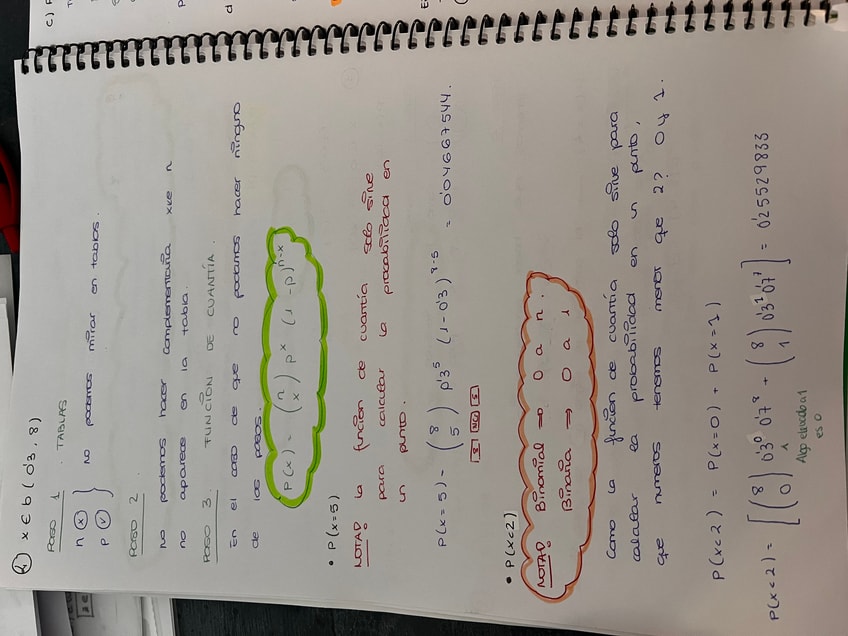 x ∈ b ( 0'3 , 8 )
PASO 1 . TABLAS
n (x)
p (v) } NO podemos mirar en tablas.
PASO 2
No podemos hacer complementaria xke n
no aparece en la tabla.
PASO 3. FUNCIÓN DE CUANTÍA.
En el caso de que no podamos hacer ninguno
de los pasos.
P(x) = (n x) p^x (1-p)^n-x
• P(x=5)
NOTA: la función de cuantía solo sirve
para calcular la probabilidad en
un punto.
P(x=5) = (8 5) p'3^5 (1-0'3)^8-5 = 0'04667544.
• P(x<2)
NOTA: Binomial → 0 a n.
Binaria → 0 a 1
Como la función de cuantía solo sirve para
calcular la probabilidad en un punto,
que numeros tenemos menor que 2? 0 y 1.
P(x<2) = P(x=0) + P(x=1)
P(x<2) = [(8 0) 0'3^0 0'7^8 + (8 1) 0'3^1 0'7^7] = 0'25529833
1
Algo elevado a 1
es 0